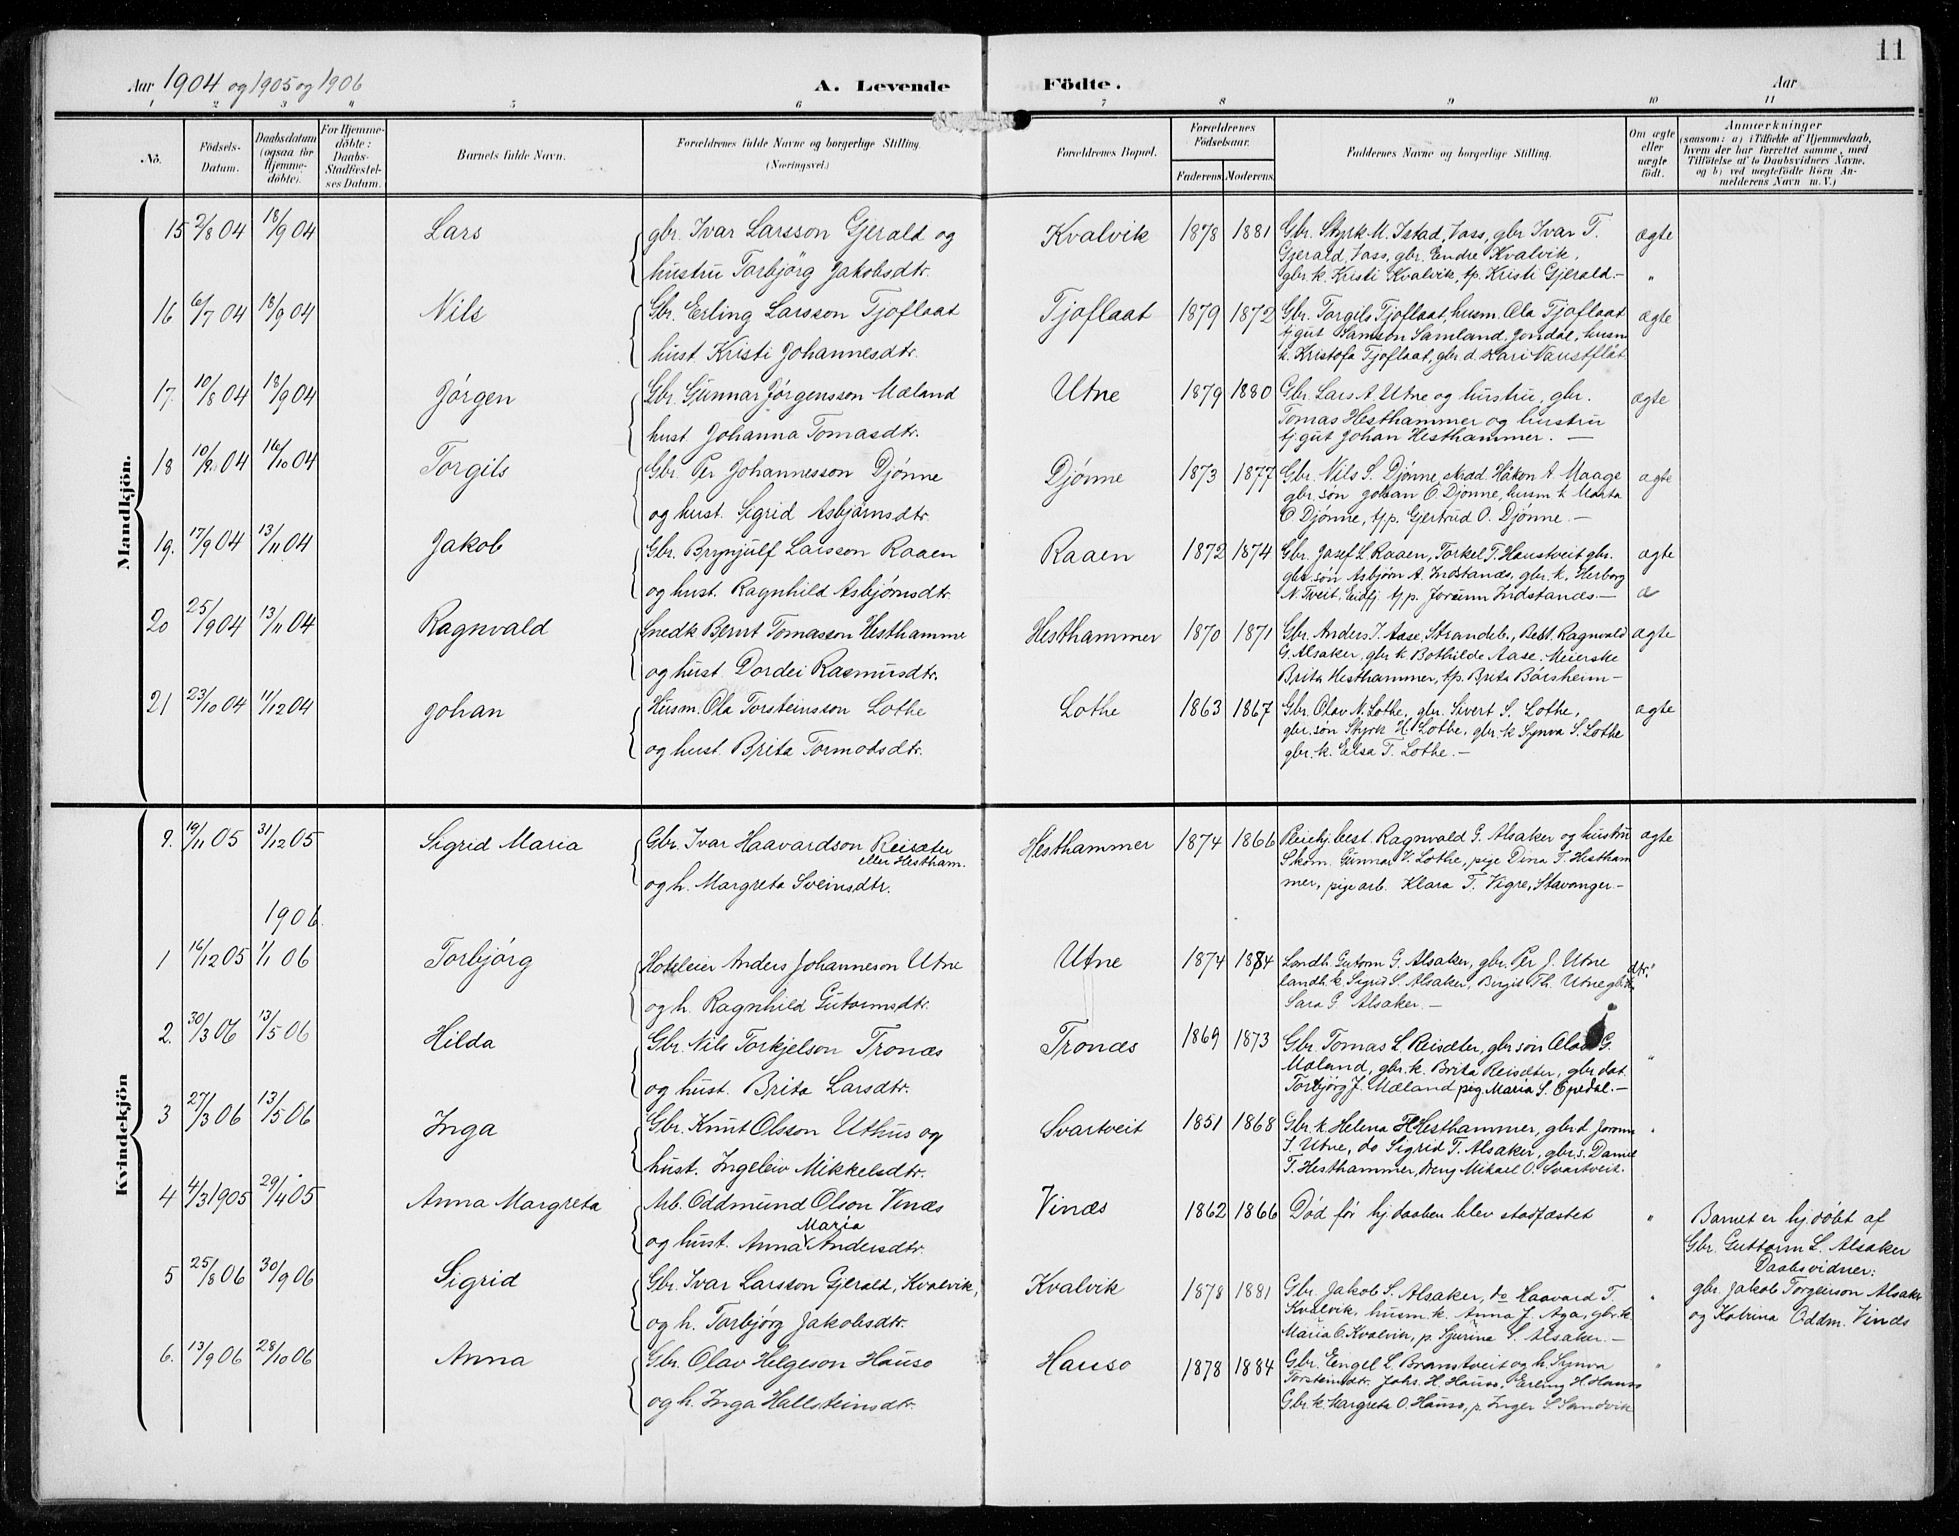 11
Aar 1904 og 1905 og 1906
A. Levende Födte.
Aar
1 2 3 4 5 6 7 8 9 10 11
No.
Födsels-
Datum.
Daabsdatum
(ogsaa for
Hjemme-
döbte).
For Hjemme-
döbte:
Daabs-
Stadfæstel-
ses Datum.
Barnets fulde Navn.
Forældrenes fulde Navne og borgerlige Stilling.
(Næringsvei.)
Forældrenes Bopæl.
Forældrenes
Födselsaar.
Faderens. Moderens.
Faddernes Navne og borgerlige Stilling.
Om ægte
eller
uægte
födt.
Anmærkninger
(saasom: a) i Tilfælde af Hjemmedaab,
hvem der har forrettet samme, med
Tilföielse af to Daabsvidners Navne,
og b) ved uægtefödte Börn An-
melderens Navn m. V.)
Mandkjön.
15 2/8 04 18/9 04 Lars gbr. Ivar Larsson Gjerald og Kvalvik 1878 1881 Gbr. Styrk M. Istad, Vass, gbr Ivar T. ægte
hustru Torbjörg Jakobsdtr. Gjerald, Vass, gbr. Endre Kvalvik,
gbr. k. Kristi Kvalvik, tp. Kristi Gjerald. - "
16 6/7 04 18/9 04 Nils Gbr. Erling Larsson Tjoflaat Tjoflaat 1879 1872 Gbr. Torgils Tjoflaat, husm. Ola Tjoflaat ægte
hust. Kristi Johannesdtr. tj. gut Samson Samland, Jondal, husm
k. Kristofa Tjoflaat, gbr. d. Kari Naustflåt.
17. 10/8 04 18/9 04 Jørgen Gbr. Gunnar Jørgensson Mæland Utne 1879 1880 Gbr. Lars A. Utne og hustru, gbr. ægte
hust. Johanna Tomasdtr. Tomas Hesthammer og hustru
tj. gut Johan Hesthammer. -
18 10/9 04 16/10 04 Torgils Gbr. Per Johannesson Djønne Djønne 1873 1877 Gbr. Nils S. Djønne, skrad. Håkon A. Maage ægte
og hust. Sigrid Asbjørnsdtr. gbr. søn Johan O. Djønne, husm k Marta
O. Djønne, t.p. Gjertrud O. Djønne. -
19. 17/9 04 13/11 04 Jakob Gbr. Brynjulf Larsson Raaen Raaen 1872 1874 Gbr. Josef L. Raaen, Torkel T. Haustveit gbr. ægte
og hust. Ragnhild Asbjørnsdtr. gbr søn Asbjørn A. Indstanæs, gbr. k. Herborg
N. Tveit, Eidfj. t.p. Jorunn Indstanæs. -
20 25/9 04 13/11 04 Ragnvald Snedk Bernt Tomasson Hesthamme Hesthammer 1870 1871 Gbr. Anders I. Aase, Strandeb., Best. Ragnvald ægte
og hust Dordei Rasmusdtr. G. Alsaker, gbr k. Bothilde Aase, Meierske
Brita Hesthammer, tp. Brita Børsheim -
21 23/10 04 11/12 04 Johan Husm. Ola Torsteinsson Lothe Lothe 1863 1867 Gbr. Olav N. Lothe, gbr. Sivert S. Lothe, ægte
og hust. Brita Tormodsdtr. gbr. søn Styrk H. Lothe, gbr. k Synva S. Lothe
gbr. k. Elsa T. Lothe. -
Kvindekjön
9. 19/11 05 31/12 05 Sigrid Maria Gbr. Ivar Haavardson Reisæter Hesthammer 1874 1866 Meierj. best. Ragnvald G. Alsaker og hustru ægte
eller Hestham.
og h. Margreta Sveinsdtr. Skom. Gunnar V. Lothe, pige Dina T. Hestham
mer, pige arb. Klara T. Vigre, Stavanger. -
1906.
1 16/12 05 1/1 06 Torbjørg Hoteleier Anders Johanneson Utne Utne 1874 1884 Landh. Gutorm G. Alsaker, gbr. Per J. Utne "
og h. Ragnhild Gutormsdtr. landh. k. Sigrid S. Alsaker, Birgit Th. Utne gbr. dtr.
Sara G. Alsaker. -
2. 30/3 06 13/5 06 Hilda Gbr. Nils Torkjelson Tronæs Tronæs 1869 1873 Gbr. Tomas L. Reisæter, gbr søn Olav G. "
og hust. Brita Larsdtr. Mæland, gbr. k. Brita Reisæter, gbr dat.
Torbjørg J. Mæland pig. Maria S. Opedal. -
3 27/3 06 13/5 06 Inga Gbr. Knut Olsson Uthus og Svartveit 1851 1868 Gbr. k. Helena H Hesthammer, gbr d. Jorunn "
hust. Ingeleiv Mikkelsdtr. I. Utne, do Sigrid T. Alsaker, gbr. s. Daniel
T. Hesthammer, dreng Mikael O. Svartveit.
4 4/3 1905 29/4 05 Anna Margreta Arb. Oddmund Olson Vinæs Vinæs 1862 1866 Död før hj. daaben blev stadfæstet " Barnet er hj. döbt af
Maria
og hust. Anna Andersdtr. Gbr. Guttorm L. Alsaker
Daabsvidner:
5 25/8 06 30/9 06 Sigrid Gbr. Ivar Larsson Gjerald, Kvalvik, Kvalvik 1878 1881 Gbr. Jakob S. Alsaker, do Haavard T. " gbr. Jakob Torgeirson Alsaker
og h. Torbjørg Jakobsdtr. Kvalvik, husm. k. Anna J. Aga, gbr. k. og Katrina Oddm. Vinæs
Maria O. Kvalvik, p. Sjurina S. Alsaker. -
6. 13/9 06 28/10 06 Anna Gbr. Olav Helgeson Hauso Hauso 1878 1884 Gbr. Engel L. Branstveit og h. Synva "
og h. Inga Hallsteinsdtr. Torsteinsdtr. Johs. H. Hauso, Erling H. Hauso
Gbr. k. Margreta O. Hauso, p. Inger S. Sandvik